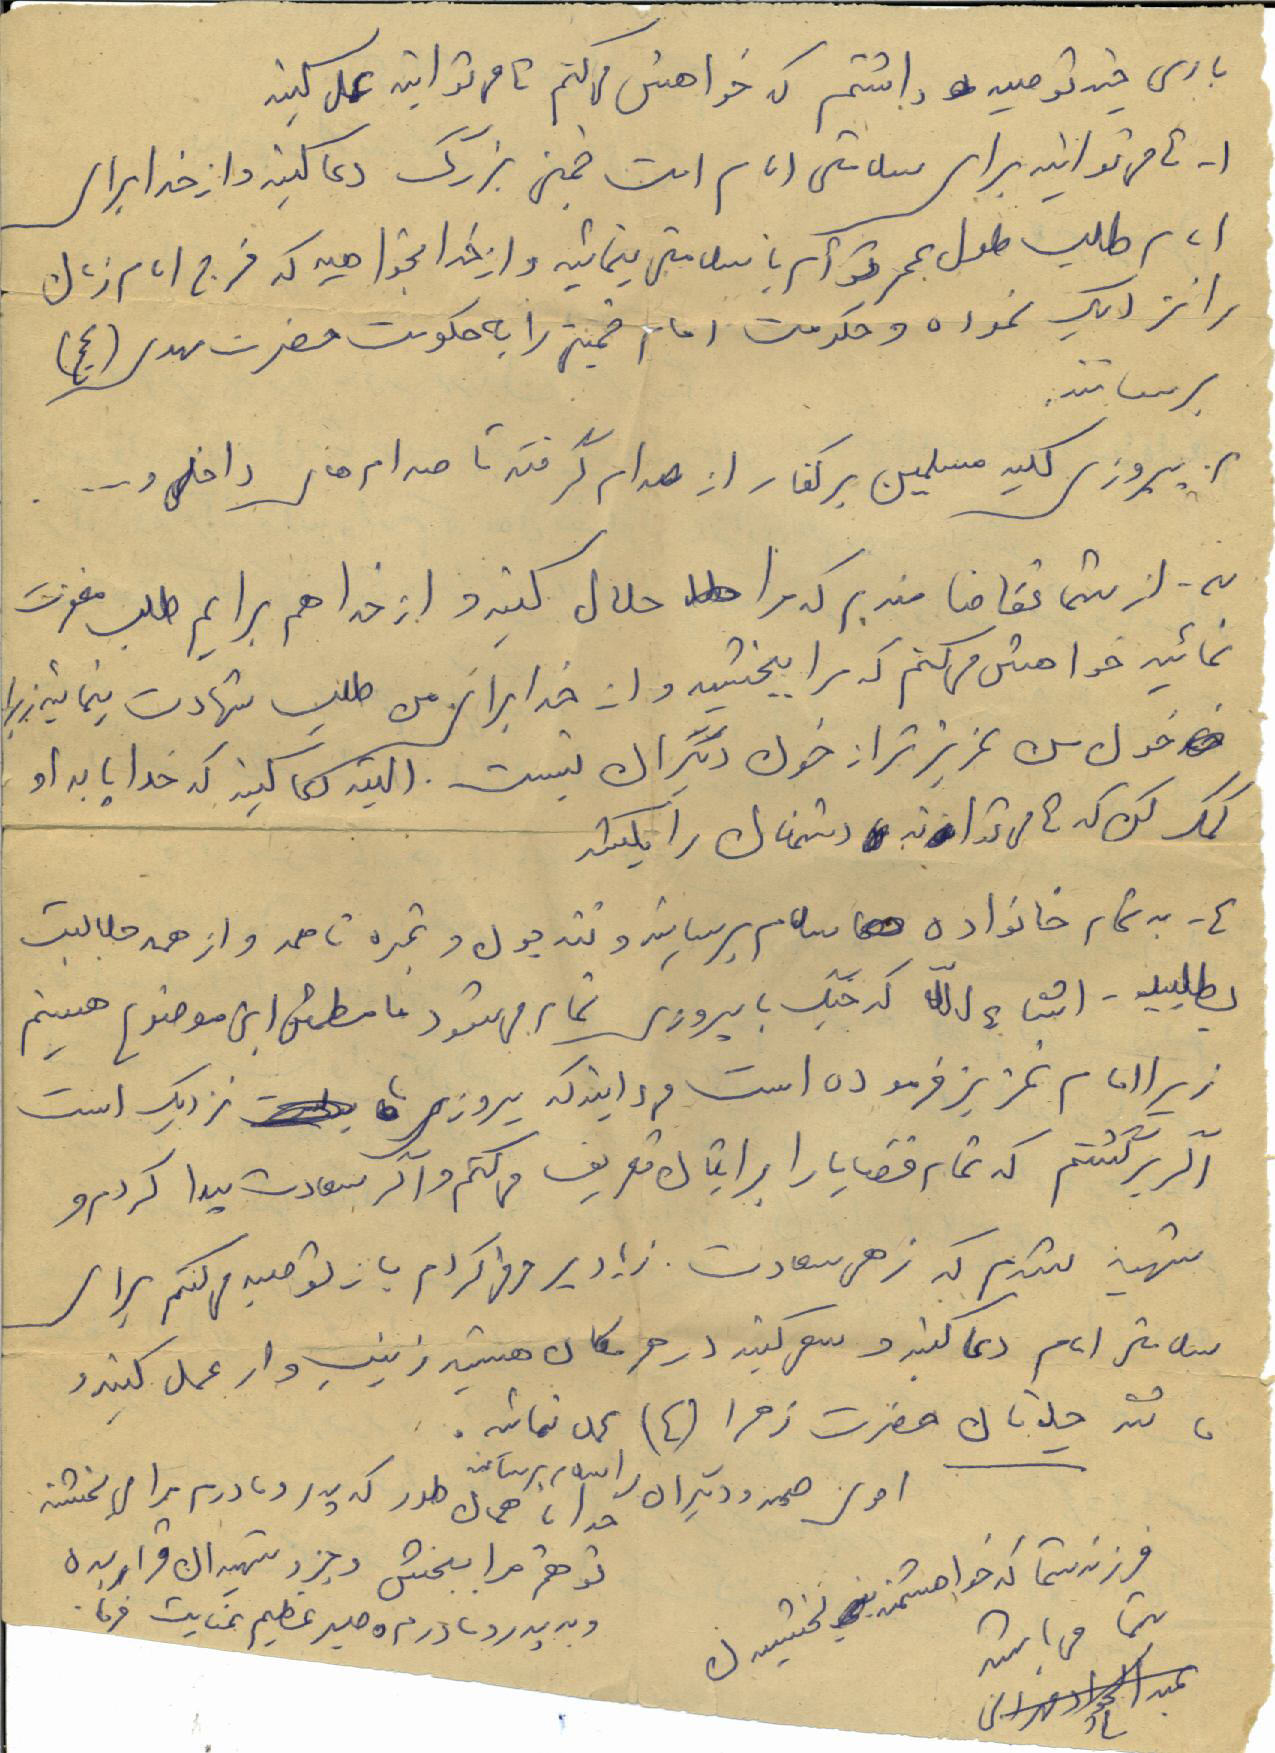 باری چند توصیه داشتم که خواهش میکنم تا می‌توانید عمل کنید
۱- تا می‌توانید برای سلامتی امام امت خمینی بزرگ دعا کنید و از خدا برای
امام طلب طول عمر توأم با سلامتی بنمائید و از خدا بخواهید که فرج امام زمان
را نزدیک نموده و حکومت امام خمینی را به حکومت حضرت مهدی (عج)
برساند.
۲- پیروزی کلیه مسلمین بر کفار از صدام گرفته تا صدام‌های داخلی و ....
۳- از شما تقاضا مندم که مرا حلال کنید و از خدا هم برایم طلب مغفرت
نمائید خواهش میکنم که مرا ببخشید و از خدا برای من طلب شهادت بنمائید زیرا
خون من عزیزتر از خون دیگران نیست. البته دعا کنید که خدایا به او
کمک کن که تا می‌تواند دشمنان را بکشد
٤- به تمام خانواده سلام برسانید و از همه حلالیت
بطلبید - انشاءالله که جنگ با پیروزی تمام می‌شود ما مطمئن این موضوع هستیم
زیرا امام عزیز فرموده است پیروزی نزدیک است
اگر برگشتم که تمام قضایا را برایتان تعریف میکنم و اگر سعادت پیدا کردم و
شهید شدم که زهی سعادت. زیاد پر حرفی کردم باز توصیه میکنم برای
سلامتی امام دعا کنید و سعی کنید در هر مکان هستید زینب وار عمل کنید و
مانند حضرت زهرا (ع) عمل نمائید.
دیگران را سلام برسانید
خدایا همان طور که پدر و مادرم مرا می‌بخشند
تو هم مرا ببخش و جزو شهیدان قرار بده
و به پدر و مادرم صبر عظیم عنایت فرما.
فرزند شما که خواهشمند بخشیدن
شما می‌باشد
عبدالجواد